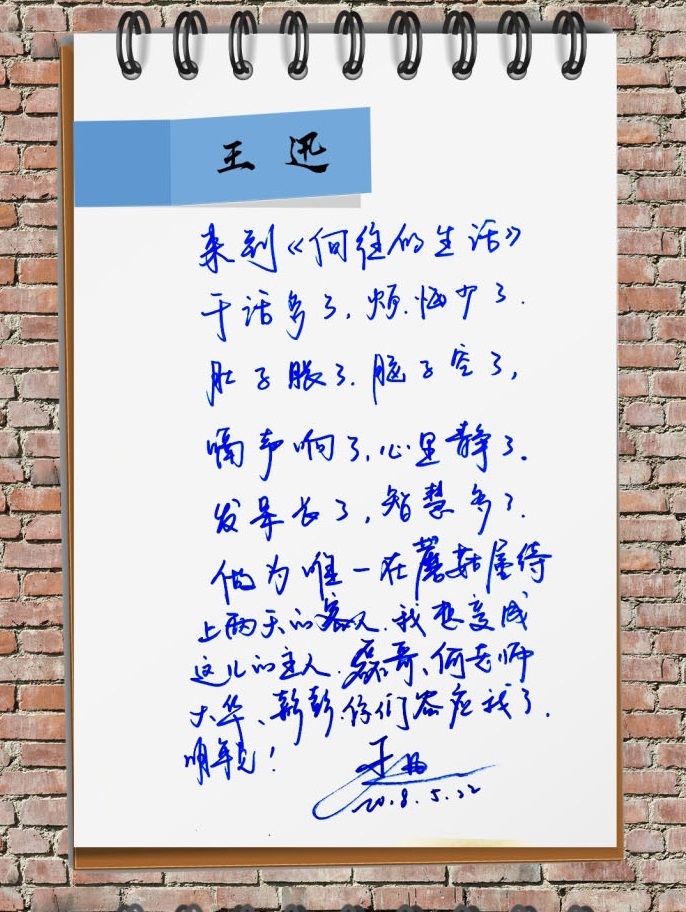 王迅
来到《向往的生活》
干话多了,烦恼少了.
肚子胀了.脑子空了,
嗝声响了,心里静了.
发呆长了,智慧多了.
做为唯一在蘑菇屋待
上两天的客人.我想变成
这儿的主人.磊哥、何老师
大华、彭彭.你们答应我了.
明年见!
王迅
20.8.5.22